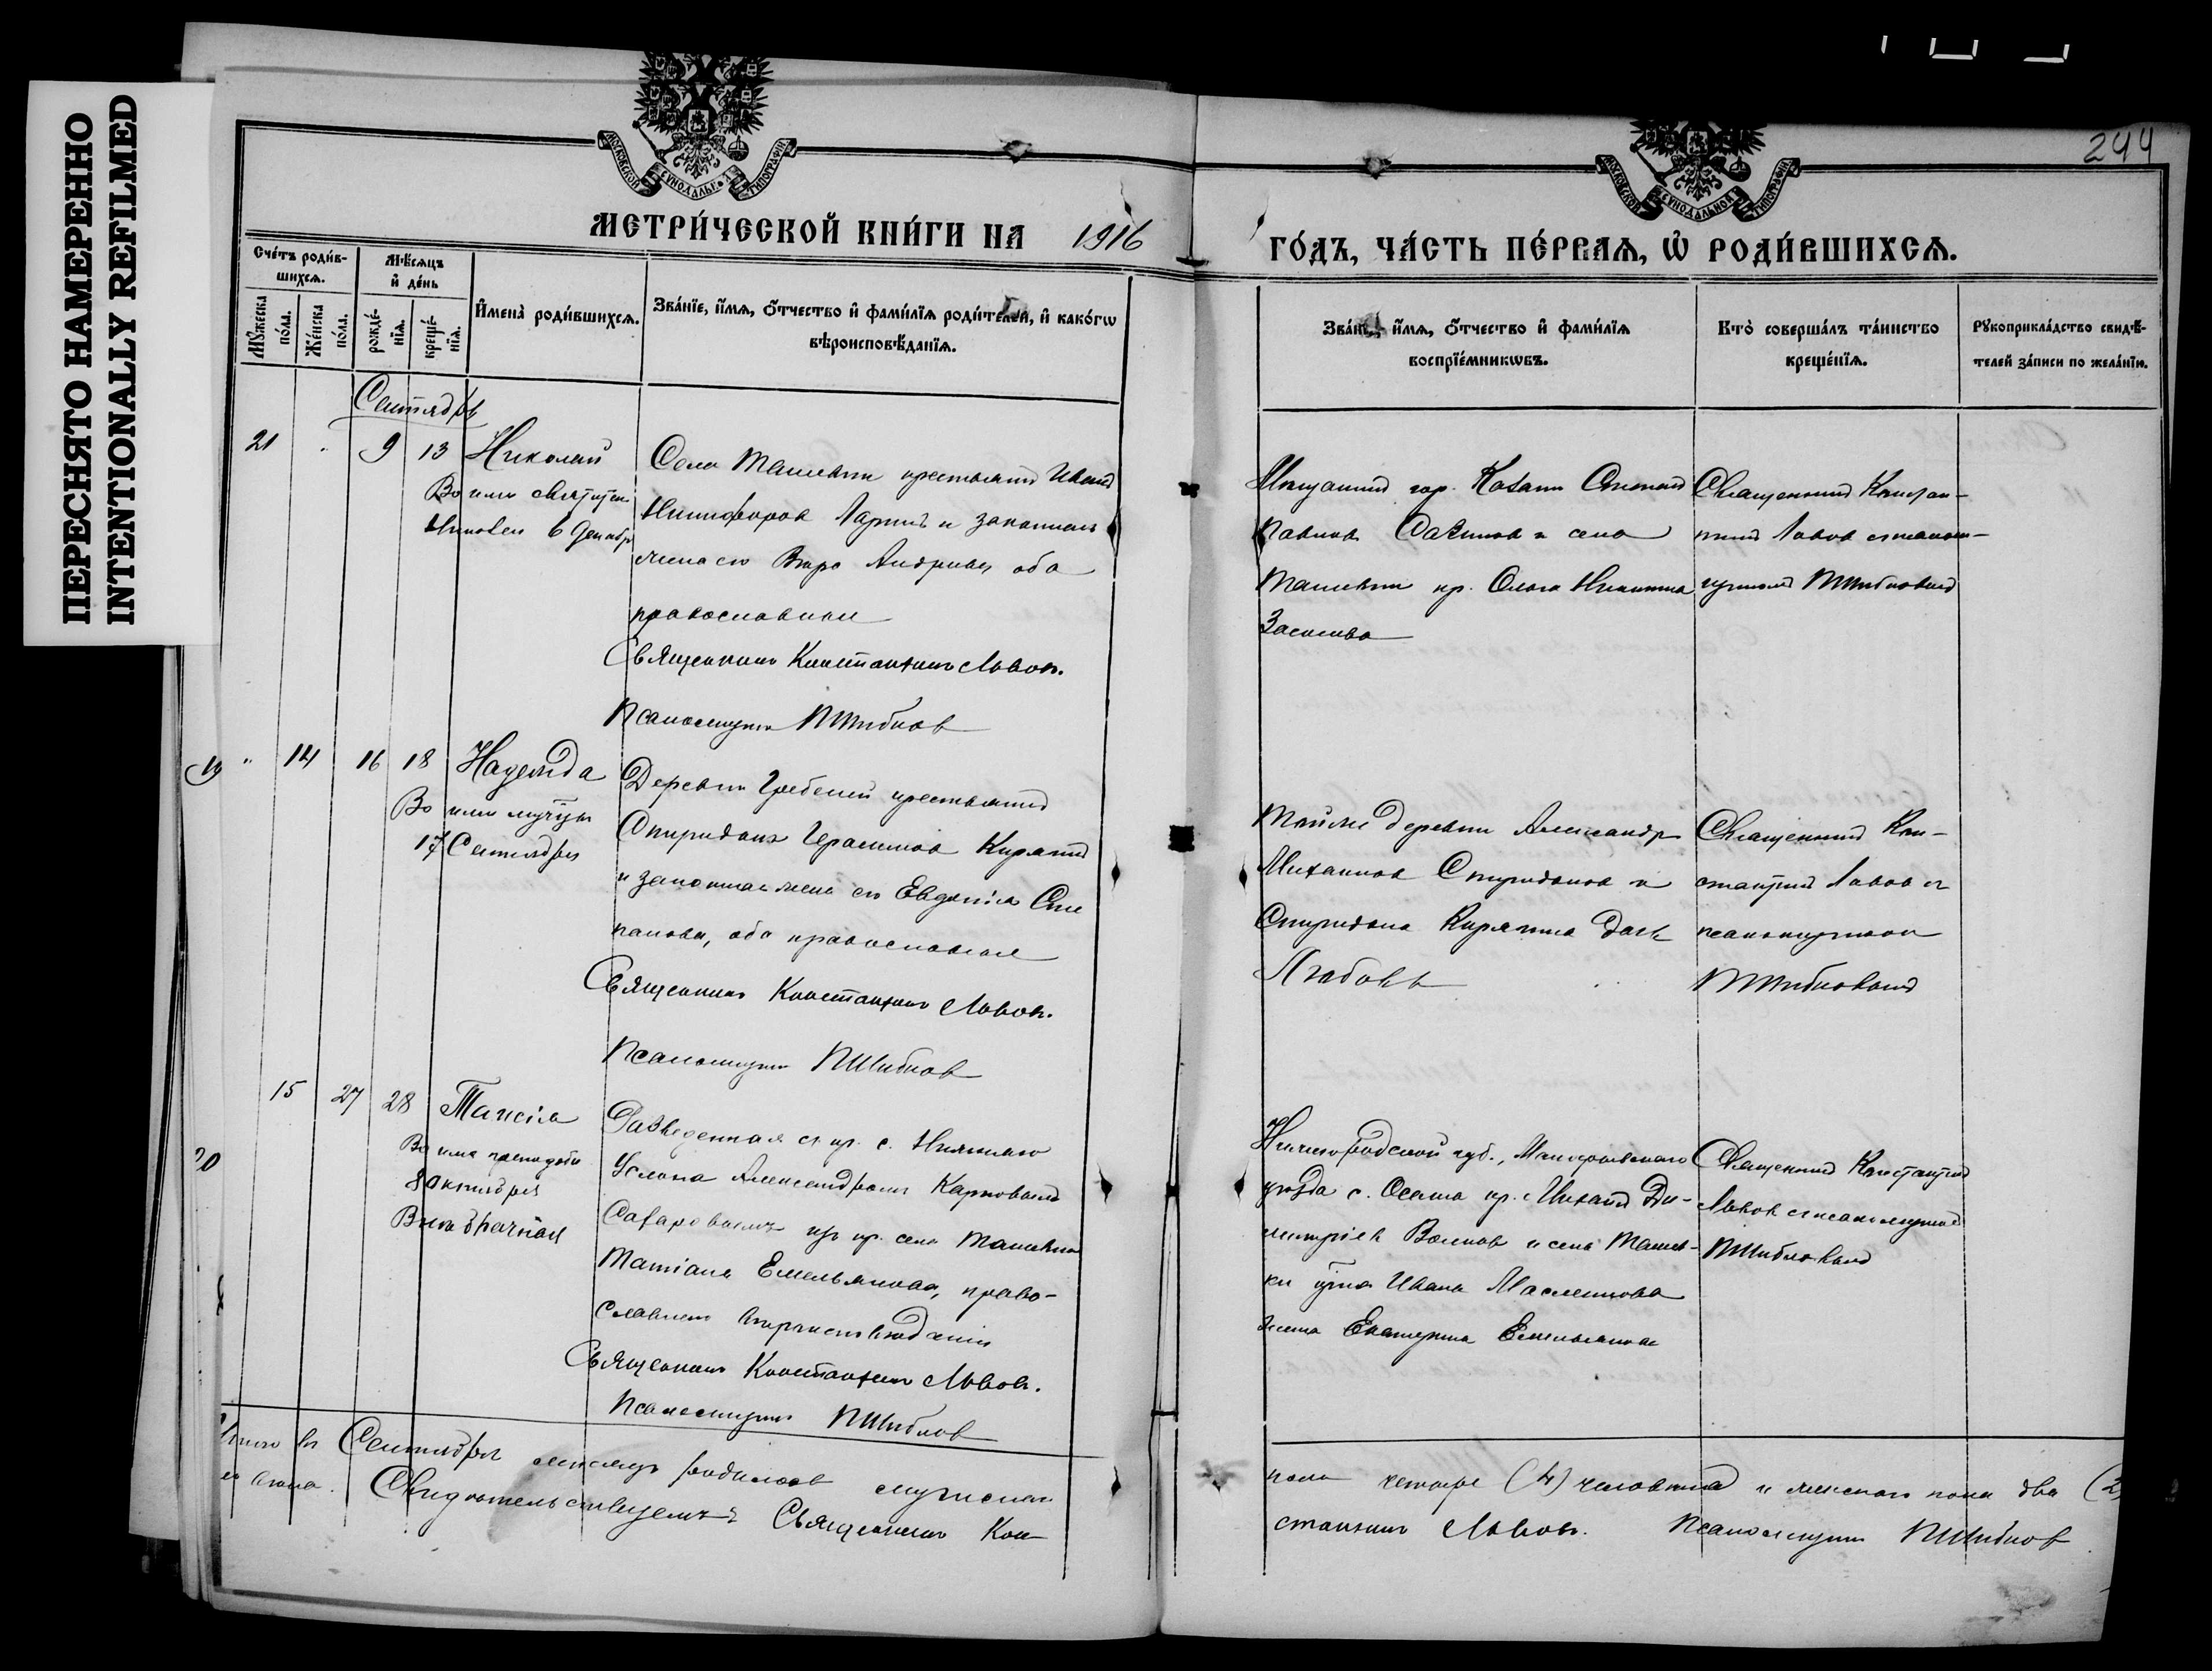 ПЕРЕСНЯТО НАМЕРЕННО
INTENTIONALLY REFILMED
244
МОСКОВСКОЙ СѴНОДАЛЬНОЙ ТИПОГРАФІИ
МОСКОВСКОЙ СѴНОДАЛЬНОЙ ТИПОГРАФІИ
МЕТРИ́ЧЕСКОЙ КНИ́ГИ НА 1916
ГО́ДЪ, ЧА́СТЬ ПЕ́РВАѦ, Ѡ РОДИ́ВШИХСѦ.
Сче́тъ роди́в-
шихсѧ.
Мꙋ́жеска по́ла.
Же́нска по́ла.
Мѣ́сѧцъ и де́нь
рожде́-нїѧ.
креще́-нїѧ.
Имена̀ роди́вшихсѧ.
Зва́нїе, и́мѧ, о́тчество и фами́лїѧ роди́телей, и како́гѡ
вѣроисповѣ́данїѧ.
Зва́нїе, и́мѧ, о́тчество и фами́лїѧ
воспрїе́мникѡвъ.
Кто̀ соверша́лъ та́инство
креще́нїѧ.
Рꙋкоприкла́дство свидѣ́-
телей за́писи по жела́нїю.
Сентябрь
21 9 13 Николай
Во имя святит.
Николая 6 Декабр
Села Ташевки крестьянинъ Иванъ
Никифоровъ Ларинъ и законная
жена его Вѣра Андреева оба
православные
Священникъ Константинъ Львовъ.
Псаломщикъ П Шибловъ
Мѣщанинъ гор. Казани
Павловъ и села
Ташевки кр. Ольга Никитина
Священникъ Констан-
тинъ Львовъ съ псаломщ-
икомъ П Шибловымъ
14 16 18 Надежда
Во имя муч-цы
17 Сентября
Деревни Гребеней крестьянинъ
Спиридонъ Герасимовъ Кирягинъ
и законная жена его Евдокія Сте
панова, оба православные
Священникъ Константинъ Львовъ.
Псаломщикъ П Шибловъ
Той же деревни Александръ
Михаиловъ Спиридоновъ и
Спиридона Кирягина дочь
Любовь
Священникъ Кон-
стантинъ Львовъ съ
псаломщикомъ
П Шибловымъ
15 27 28 Таисія
Во имя преподобн
8 Октября
Внѣбрачная
Разведенная съ кр. с. Нижняго
Услона Александромъ Карповымъ
изъ кр. села Ташевки
Татіана Емельянова, право-
славнаго вѣроисповѣданія
Священникъ Константинъ Львовъ.
Псаломщикъ П Шибловъ
Нижегородской губ.,
уѣзда с. кр. Михаилъ Ди-
митріевъ Волковъ и села Ташев-
ки Ивана Масленникова
жена Екатерина Емельянова
Священникъ Константинъ
Львовъ съ псаломщикомъ
П Шибловымъ
Итого въ Сентябрѣ мѣсяцѣ родилось мужскаго
пола четыре (4) человѣка и женскаго пола два (2
Свидѣтельствуемъ: Священникъ Кон-
стантинъ Львовъ. Псаломщикъ П Шибловъ